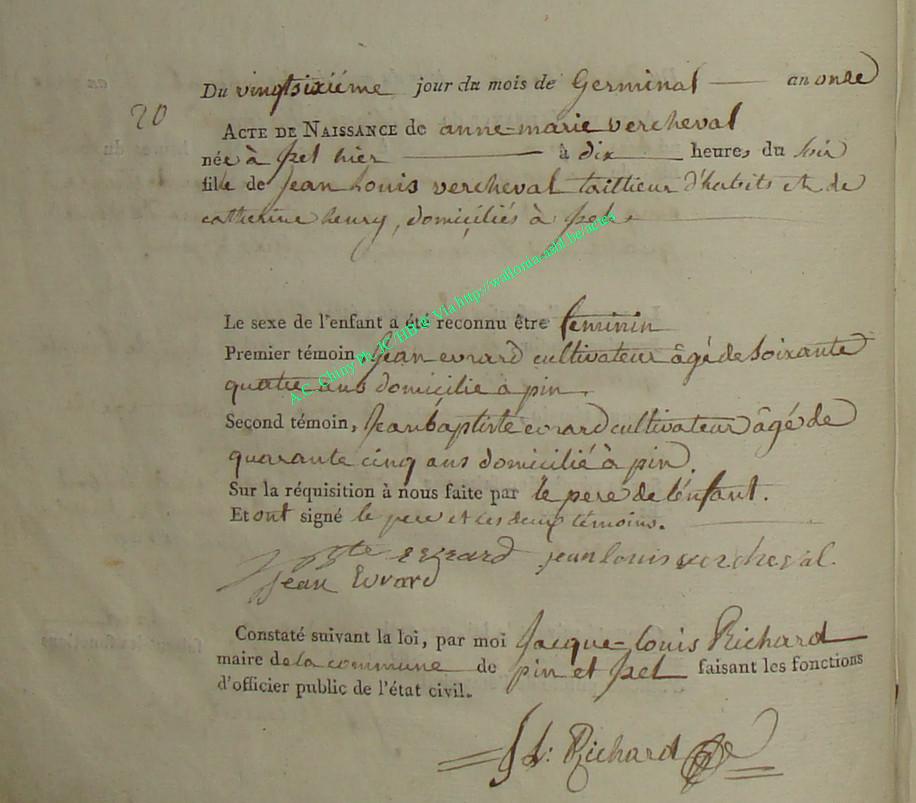 Du vingtsixiéme jour du mois de Germinal an onze
20
ACTE DE NAISSANCE de anne-marie vercheval
née à Izel hier à dix heures du soir
fille de jean Louis vercheval taillieur d'habits et de
catherine henry, domiciliés à Izel
Le sexe de l'enfant a été reconnu être féminin
Premier témoin, Jean evrard cultivateur âgé de soixante
quatre ans domicilié à pin.
Second témoin, Jean baptiste evrard cultivateur âgé de
quarante cinq ans domicilié à pin.
Sur la réquisition à nous faite par le pere de l'enfant.
Et ont signé le pere et les deux témoins.
evrard jean louis vercheval.
Jean Evrard
Constaté suivant la loi, par moi Jacque-louis Richard
maire de la commune de pin et Izel faisant les fonctions
d'officier public de l'état civil.
J L: Richard
A.C. Chiny Via http://wallonia-asbl.be/actes